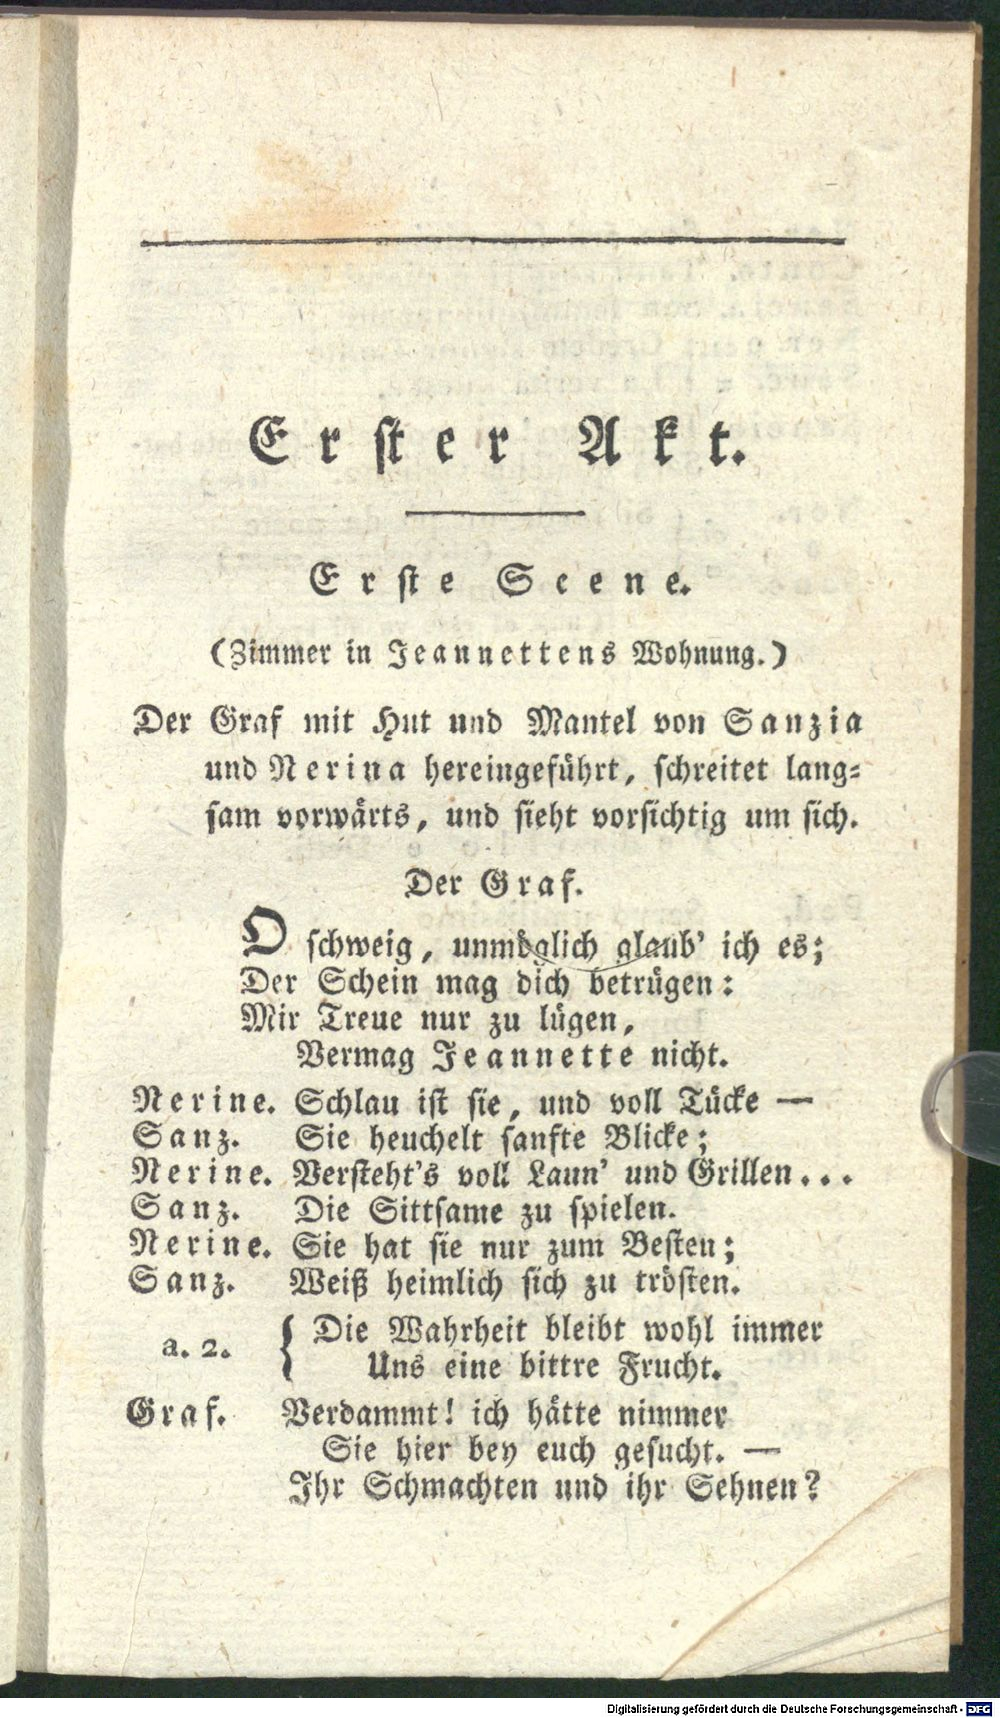 Erster Akt.
Erste Scene.
(Zimmer in Jeannettens Wohnung.)
Der Graf mit Hut und Mantel von Sanzia
und Nerina hereingeführt, schreitet lang-
sam vorwärts, und sieht vorsichtig um sich.
Der Graf.
O schweig, unmöglich glaub' ich es;
Der Schein mag dich betrügen:
Mir Treue nur zu lügen,
Vermag Jeannette nicht.
Nerine. Schlau ist sie, und voll Tücke —
Sanz. Sie heuchelt sanfte Blicke;
Nerine. Versteht's voll Laun' und Grillen...
Sanz. Die Sittsame zu spielen.
Nerine. Sie hat sie nur zum Besten;
Sanz. Weiß heimlich sich zu trösten.
a. 2. { Die Wahrheit bleibt wohl immer
Uns eine bittre Frucht.
Graf. Verdammt! ich hätte nimmer
Sie hier bey euch gesucht. —
Ihr Schmachten und ihr Sehnen?
Digitalisierung gefördert durch die Deutsche Forschungsgemeinschaft - DFG